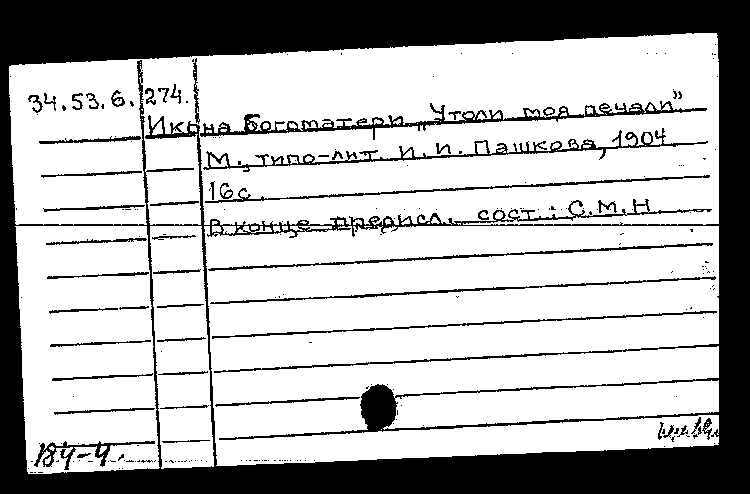 34.53.6.274.
Икона Богоматери „Утоли моя печали”.
М., типо-лит. И.И. Пашкова, 1904.
16с.
В конце предисл. сост.: С.М.Н.
184-4.